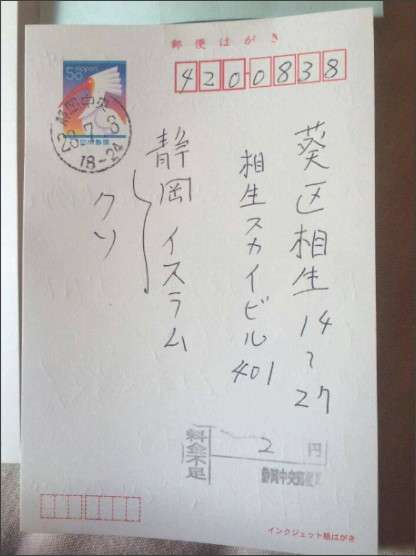 郵便はがき
58 NIPPON
日本郵便
静岡中央
18-24
4200838
葵区相生14〜27
相生スカイビル401
静岡イスラム
クソ
料金不足
2円
静岡中央郵便局
インクジェット紙はがき